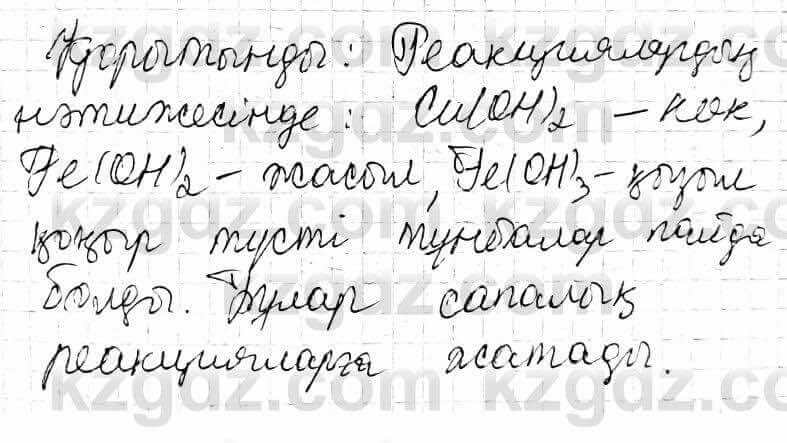 Қорытынды: Реакциялардың
нәтижесінде: Cu(OH)₂ – көк,
Fe(OH)₂ – жасыл, Fe(OH)₃ – қызыл
қоңыр түсті тұнбалар пайда
болды. Бұлар сапалық
реакцияларға жатады.
kzgdz.com